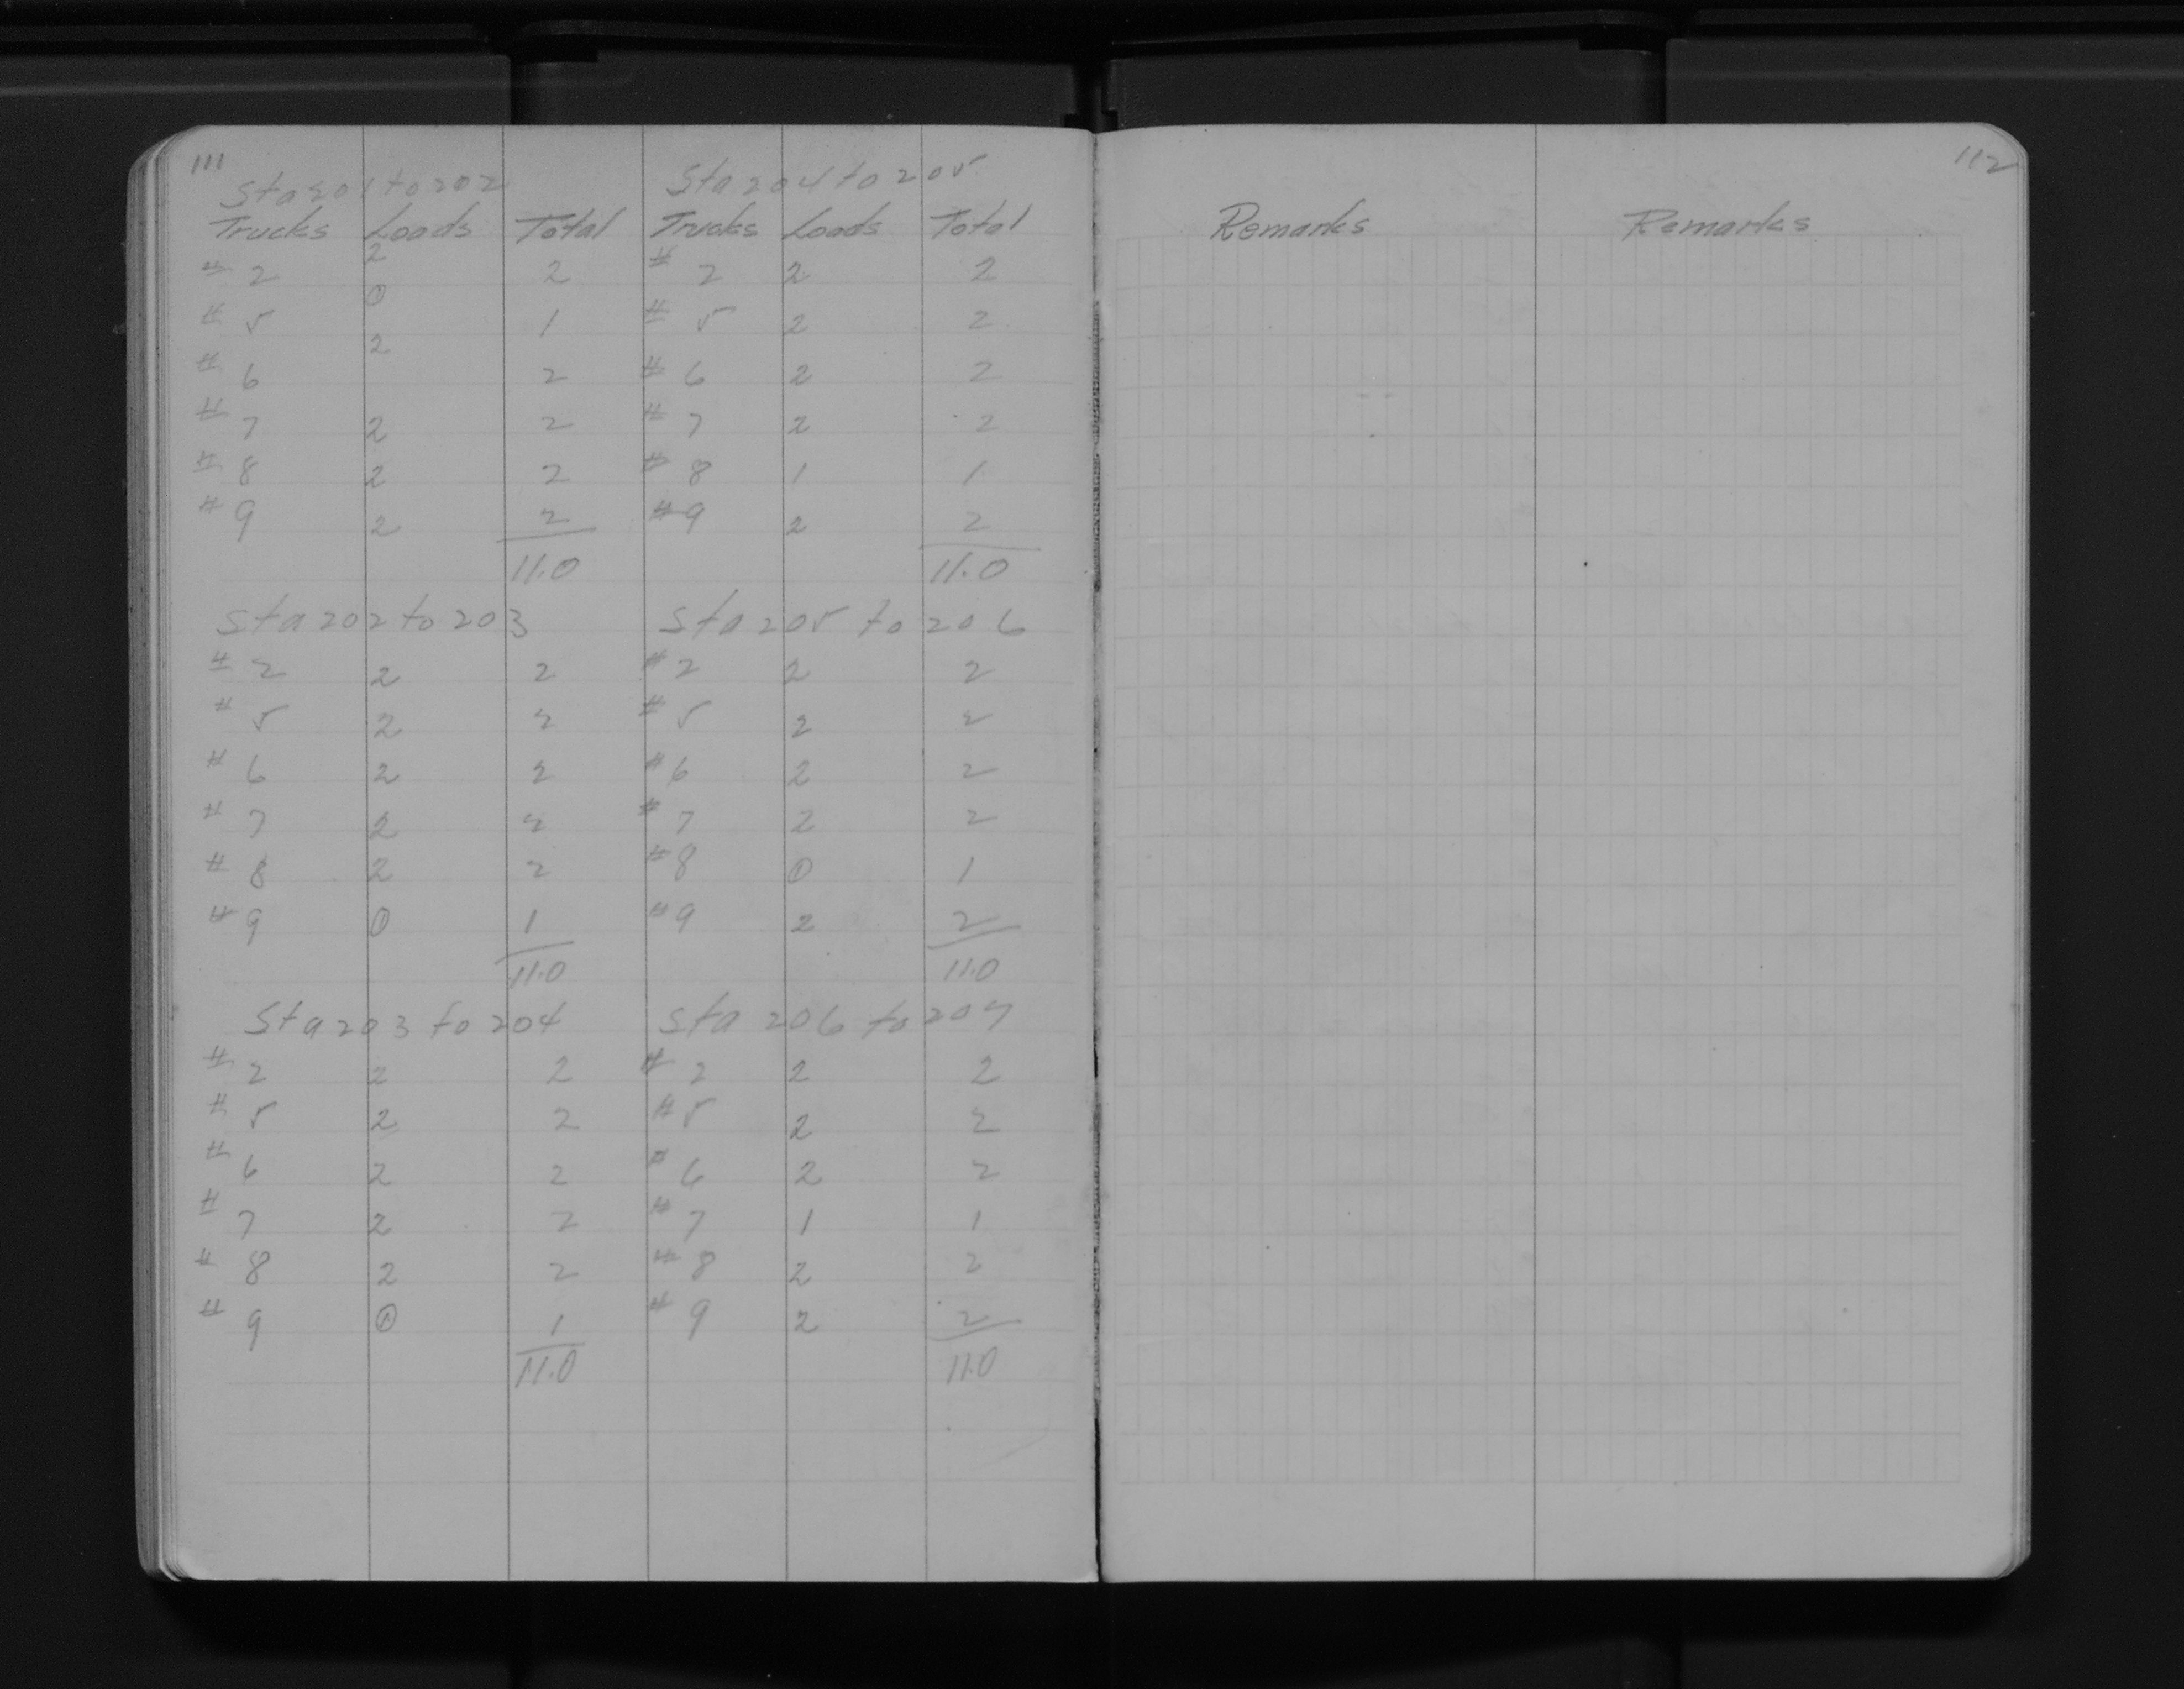 111
Sta 201 to 202
Trucks Loads Total
# 2 2 2
# 5 ① 1
# 6 2 2
# 7 2 2
# 8 2 2
# 9 2 2
11.0
Sta 202 to 203
# 2 2 2
# 5 2 2
# 6 2 2
# 7 2 2
# 8 2 2
# 9 ① 1
11.0
Sta 203 to 204
# 2 2 2
# 5 2 2
# 6 2 2
# 7 2 2
# 8 2 2
# 9 ① 1
11.0
Sta 204 to 205
Trucks Loads Total
# 2 2 2
# 5 2 2
# 6 2 2
# 7 2 2
# 8 1 1
# 9 2 2
11.0
Sta 205 to 206
# 2 2 2
# 5 2 2
# 6 2 2
# 7 2 2
# 8 ① 1
# 9 2 2
11.0
Sta 206 to 207
# 2 2 2
# 5 2 2
# 6 2 2
# 7 1 1
# 8 2 2
# 9 2 2
11.0
112
Remarks Remarks